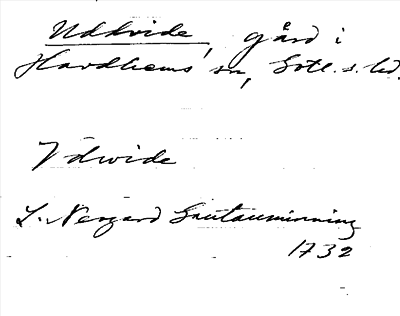 Uddvide, gård i
Havdhems sn, Gotl. s. hd.
Ydwide
L. Nergård Gautauminning
1732